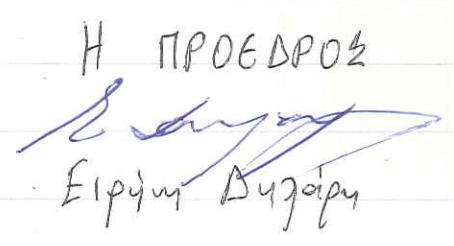 Η ΠΡΟΕΔΡΟΣ
Ειρήνη Δηλάρη